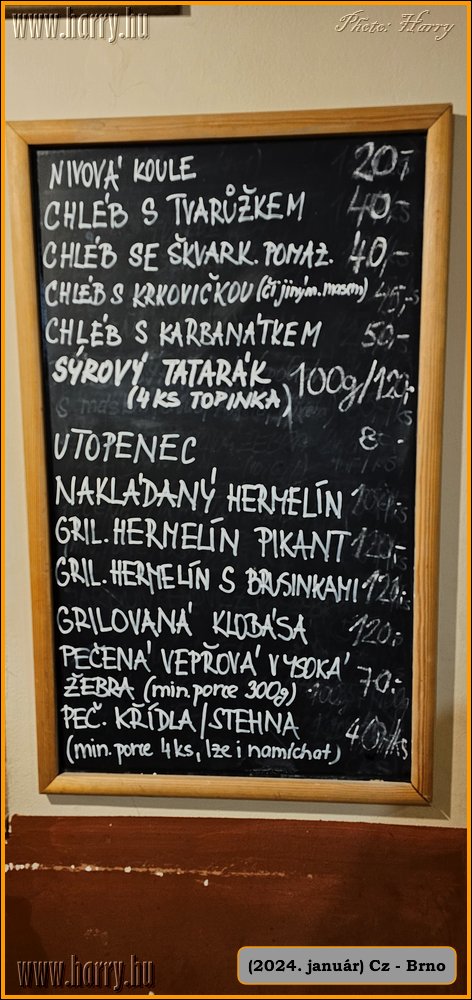 www.harry.hu
Photo: Harry
NIVOVÁ KOULE 20,-
CHLÉB S TVARŮŽKEM 40,-
CHLÉB SE ŠKVARK. POMAZ. 40,-
CHLÉB S KRKOVIČKOU (ČI JINÝM. masem) 45,-
CHLÉB S KARBANÁTKEM 50,-
SÝROVÝ TATARÁK 100g/120,-
(4 KS TOPINKA)
UTOPENEC
NAKLÁDANÝ HERMELÍN
GRIL. HERMELÍN PIKANT 120,-
GRIL. HERMELÍN S BRUSINKAMI 120,-
GRILOVANÁ KLOBÁSA 120,-
PEČENÁ VEPŘOVÁ VYSOKÁ
ŽEBRA (min. porce 300g) 70,-
PEČ. KŘÍDLA/STEHNA 40,-/ks
(min. porce 4 ks, lze i namíchat)
www.harry.hu
(2024. január) Cz - Brno